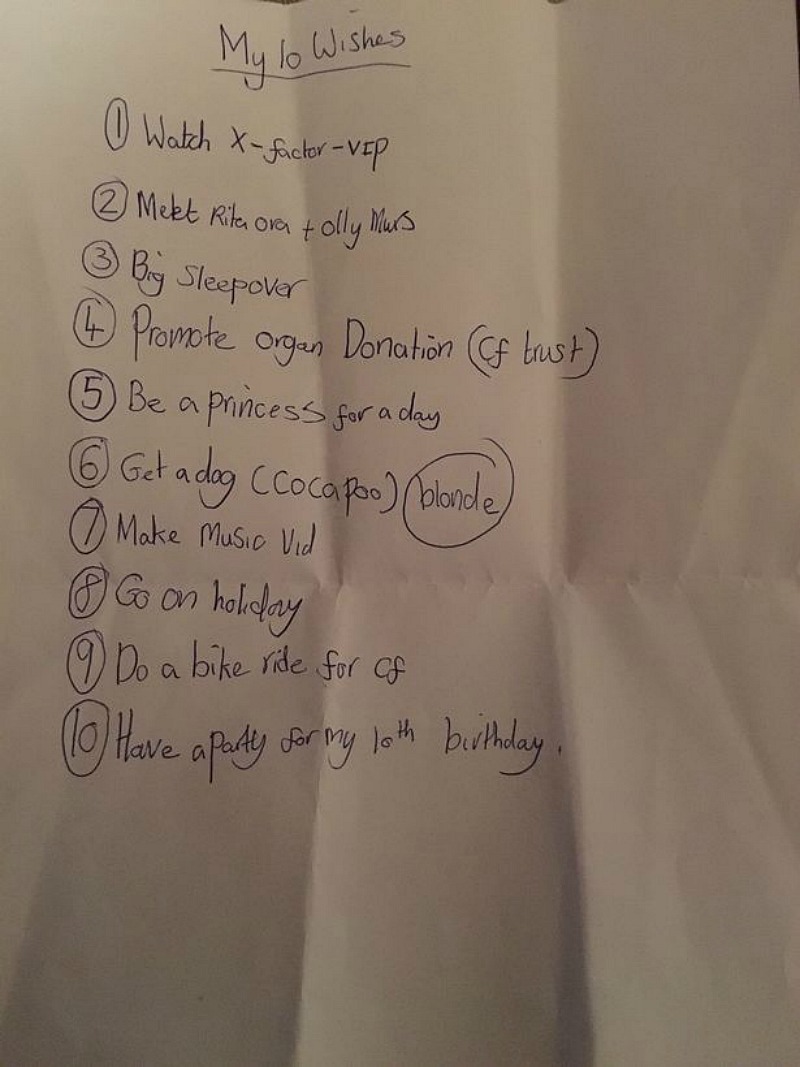 My 10 Wishes
① Watch X-factor-VIP
② Meet Rita ora + olly Murs
③ Big Sleepover
④ Promote organ Donation (Cf trust)
⑤ Be a princess for a day
⑥ Get a dog (Cocapoo) blonde
⑦ Make Music Vid
⑧ Go on holiday
⑨ Do a bike ride for Cf
⑩ Have a party for my 10th birthday.